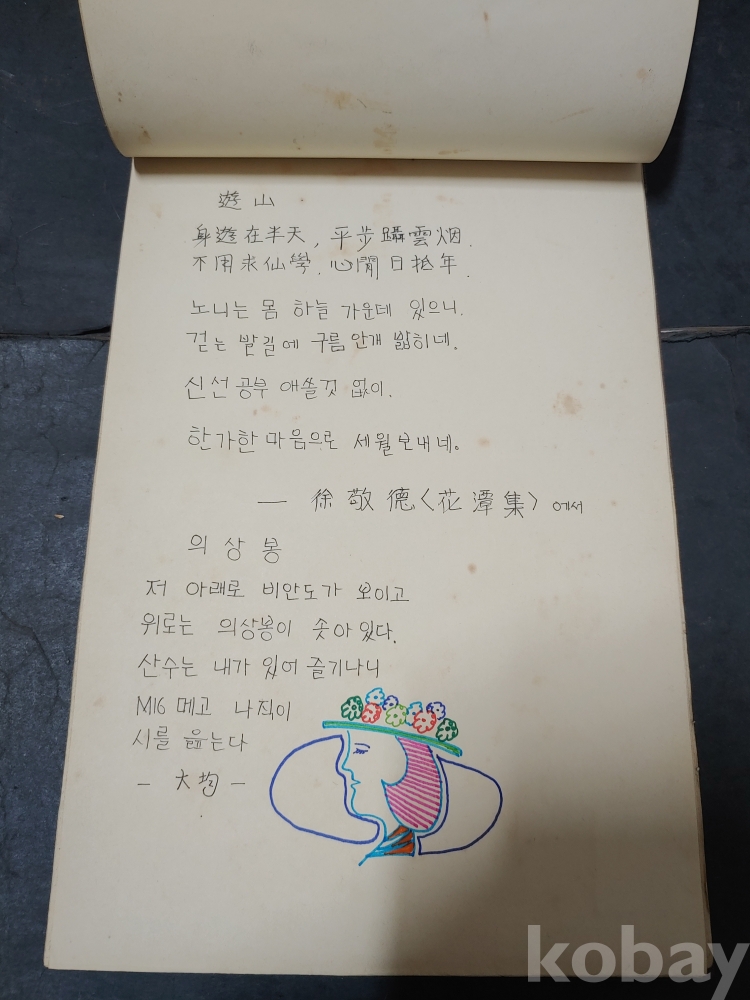 遊山
身遊在半天, 平步躡雲烟.
不用求仙學. 心閒日抵年.
노니는 몸 하늘 가운데 있으니.
걷는 발길에 구름안개 밟히네.
신선공부 애쓸것 없이.
한가한 마음으로 세월보내네.
— 徐敬德〈花潭集〉에서
의상봉
저 아래로 비안도가 보이고
위로는 의상봉이 솟아있다.
산수는 내가 있어 즐기나니
M16 메고 나직이
시를 읊는다
- 大均 -
kobay